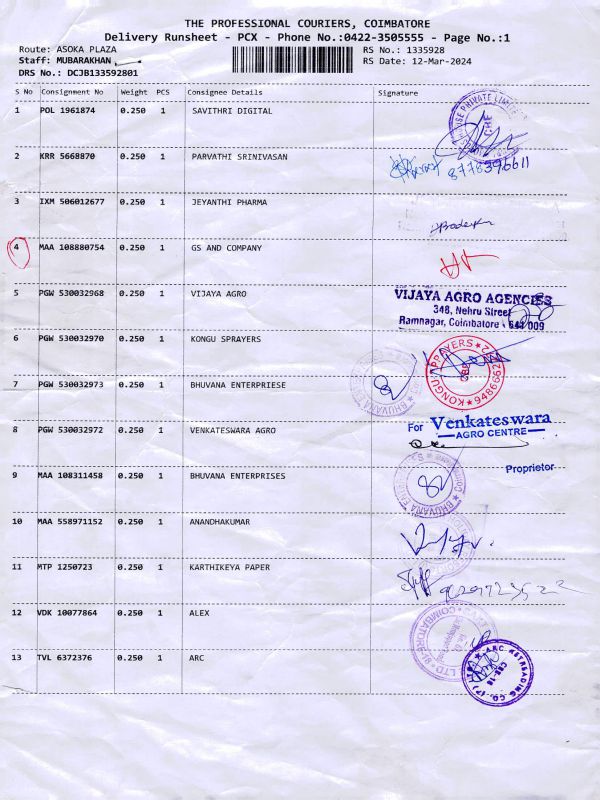 THE PROFESSIONAL COURIERS, COIMBATORE
Delivery Runsheet - PCX - Phone No.:0422-3505555 - Page No.:1
Route: ASOKA PLAZA RS No.: 1335928
Staff: MUBARAKHAN RS Date: 12-Mar-2024
DRS No.: DCJB133592801
S No Consignment No Weight PCS Consignee Details Signature
1 POL 1961874 0.250 1 SAVITHRI DIGITAL
2 KRR 5668870 0.250 1 PARVATHI SRINIVASAN
8778396611
3 IXM 506012677 0.250 1 JEYANTHI PHARMA
4 MAA 108880754 0.250 1 GS AND COMPANY
5 PGW 530032968 0.250 1 VIJAYA AGRO
VIJAYA AGRO AGENCIES
348, Nehru Street
Ramnagar, Coimbatore - 641 009
6 PGW 530032970 0.250 1 KONGU SPRAYERS
KONGU SPRAYERS
CBE
7 PGW 530032973 0.250 1 BHUVANA ENTERPRIESE
BHUVANA
8 PGW 530032972 0.250 1 VENKATESWARA AGRO
For Venkateswara
AGRO CENTRE
Proprietor
9 MAA 108311458 0.250 1 BHUVANA ENTERPRISES
BHUVANA
10 MAA 558971152 0.250 1 ANANDHAKUMAR
11 MTP 1250723 0.250 1 KARTHIKEYA PAPER
12 VDK 10077864 0.250 1 ALEX
COIMBATORE
13 TVL 6372376 0.250 1 ARC
ARC RETREADING CO. (P) LTD
CBE-18